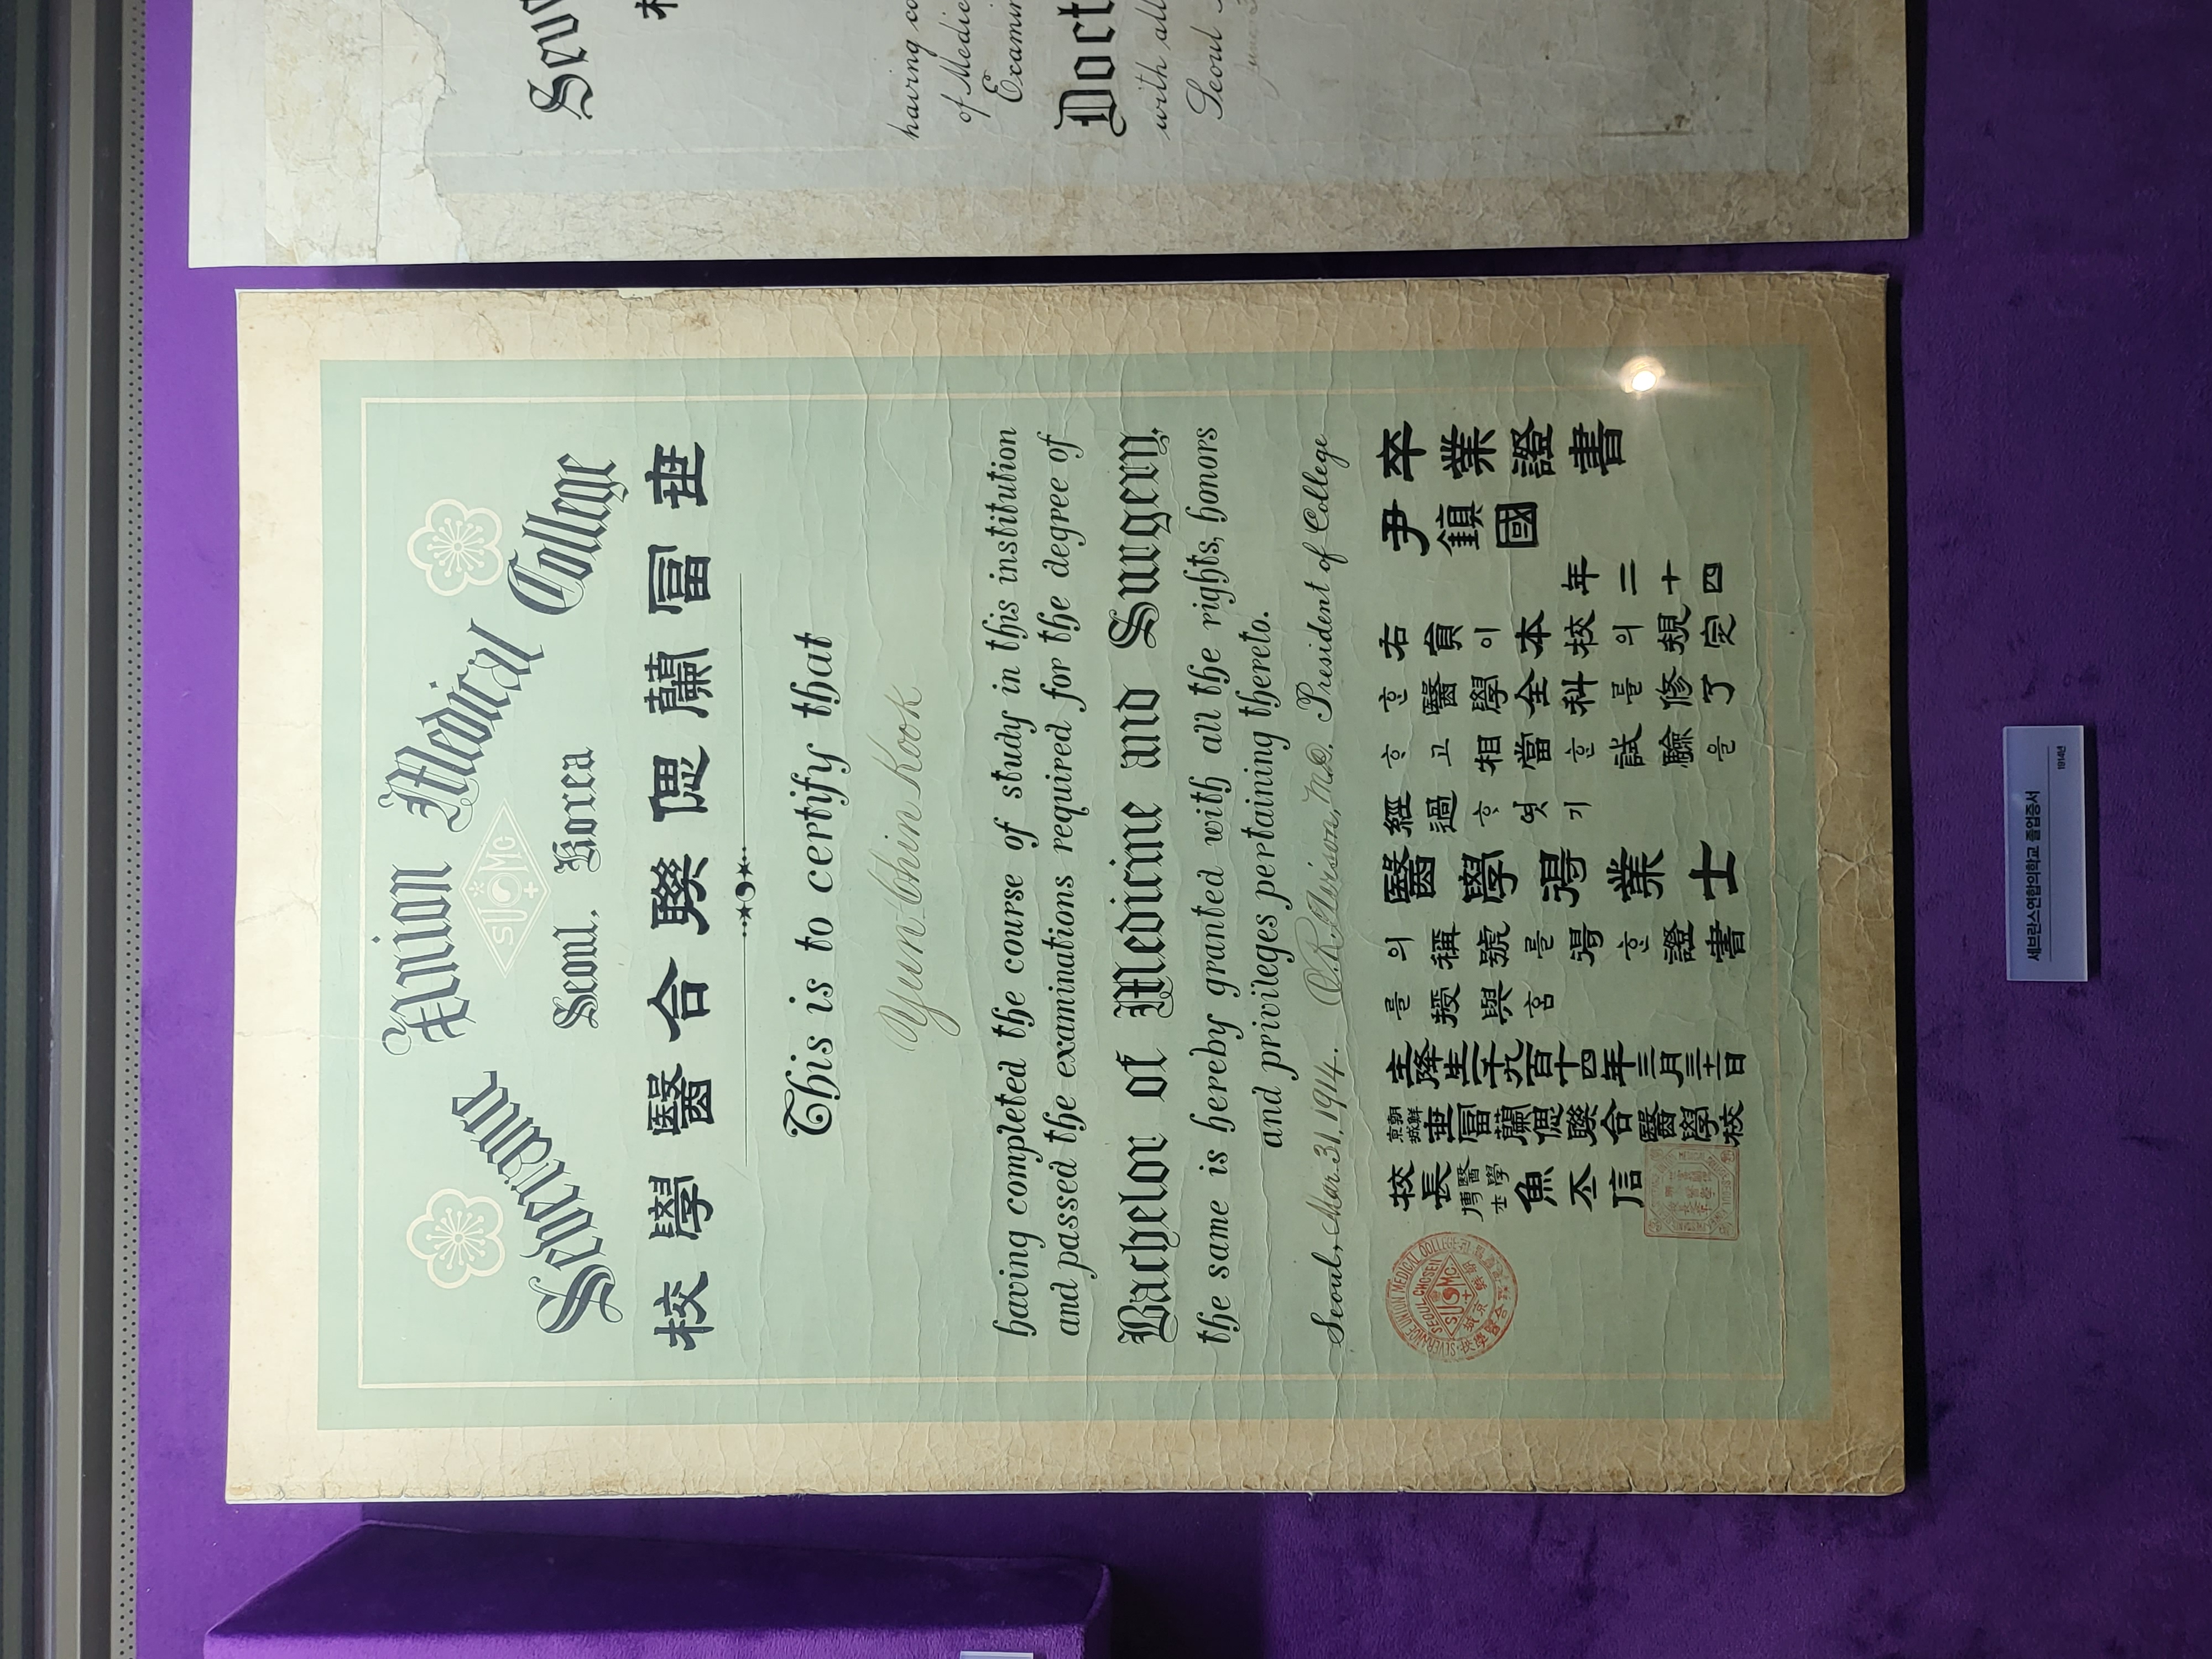 Severance Union Medical College
SUMC
Seoul, Korea
校學醫合聯偲蘭富世
This is to certify that
Yun Chin Kook
having completed the course of study in this institution
and passed the examinations required for the degree of
Bachelor of Medicine and Surgery,
the same is hereby granted with all the rights, honors
and privileges pertaining thereto.
Seoul, Mar. 31, 1914. O.R. Avison, M.D. President of College
卒業證書
尹鎭國
年二十四
右員이本校의規定
한醫學全科를修了
하고相當한試驗을
經過하엿기
醫學得業士
의稱號를得한證書
를授與홈
主降生一千九百十四年三月三十一日
朝鮮京城世富蘭偲聯合醫學校
校長醫學博士魚丕信
SEVERANCE UNION MEDICAL COLLEGE
SEOUL CHOSEN
SUMC
Seve
having co
of Medic
Examin
Doct
with all
Seoul
June
세브란스연합의학교 졸업증서
1914년